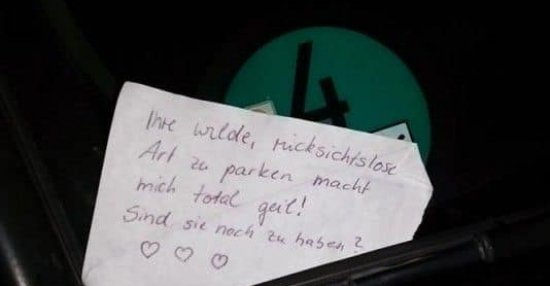 4
Ihre wilde, rücksichtslose
Art zu parken macht
mich total geil!
Sind sie noch zu haben?
♡ ♡ ♡